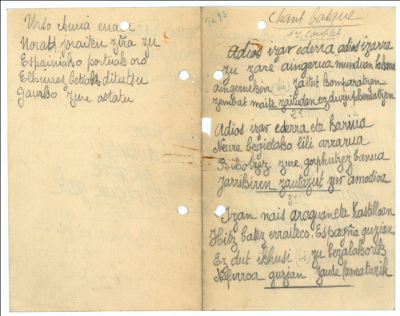 Urso churia errazu
Norat joaiten zira zu
Espainiako portuak oro
Elhurrez betiak ditutzu
Gaurko zure ostatu
Chant basque
1er couplet
Adios izar ederra adios izarra
zu zare aingerua munduan
aingeruekin zaitut komparatzen
zembat maite zaitudan ez duzu
2e
Adios izar ederra eta
Neure begietako lili arraroa
Bihotzez zure gorphutzez banua
Jarrikiren zautazut zur amodioa
3e
Izan nais araguan eta Kastilloan
Hitz batez erraiteco Espagña guzian
Ez dut ikhusi zu bezalakorik
Nafarroa guzian